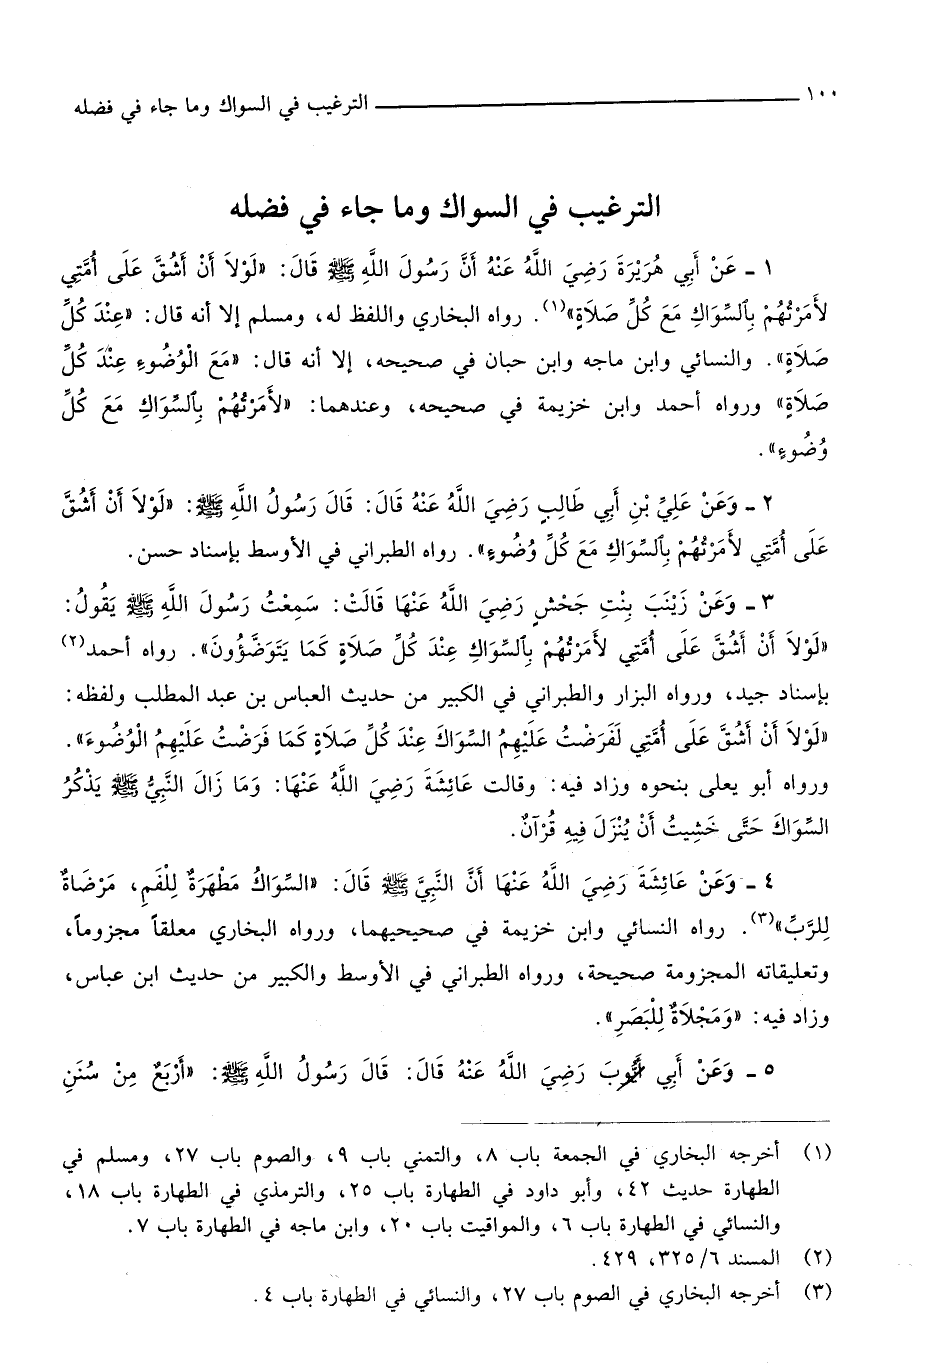 ١٠٠ الترغيب في السواك وما جاء في فضله
الترغيب في السواك وما جاء في فضله
١ ـ عَنْ أَبِي هُرَيْرَةَ رَضِيَ اللَّهُ عَنْهُ أَنَّ رَسُولَ اللَّهِ ﷺ قَالَ: «لَوْلاَ أَنْ أَشُقَّ عَلَى أُمَّتِي
لأَمَرْتُهُمْ بِٱلسِّوَاكِ مَعَ كُلِّ صَلاَةٍ»(١). رواه البخاري واللفظ له، ومسلم إلا أنه قال: «عِنْدَ كُلِّ
صَلاَةٍ». والنسائي وابن ماجه وابن حبان في صحيحه، إلا أنه قال: «مَعَ الْوُضُوءِ عِنْدَ كُلِّ
صَلاَةٍ» ورواه أحمد وابن خزيمة في صحيحه، وعندهما: «لأَمَرْتُهُمْ بِٱلسِّوَاكِ مَعَ كُلِّ
وُضُوءٍ».
٢ ـ وَعَنْ عَلِيِّ بْنِ أَبِي طَالِبٍ رَضِيَ اللَّهُ عَنْهُ قَالَ: قَالَ رَسُولُ اللَّهِ ﷺ: «لَوْلاَ أَنْ أَشُقَّ
عَلَى أُمَّتِي لأَمَرْتُهُمْ بِٱلسِّوَاكِ مَعَ كُلِّ وُضُوءٍ». رواه الطبراني في الأوسط بإسناد حسن.
٣ ـ وَعَنْ زَيْنَبَ بِنْتِ جَحْشٍ رَضِيَ اللَّهُ عَنْهَا قَالَتْ: سَمِعْتُ رَسُولَ اللَّهِ ﷺ يَقُولُ:
«لَوْلاَ أَنْ أَشُقَّ عَلَى أُمَّتِي لأَمَرْتُهُمْ بِٱلسِّوَاكِ عِنْدَ كُلِّ صَلاَةٍ كَمَا يَتَوَضَّؤُونَ». رواه أحمد(٢)
بإسناد جيد، ورواه البزار والطبراني في الكبير من حديث العباس بن عبد المطلب ولفظه:
«لَوْلاَ أَنْ أَشُقَّ عَلَى أُمَّتِي لَفَرَضْتُ عَلَيْهِمُ السِّوَاكَ عِنْدَ كُلِّ صَلاَةٍ كَمَا فَرَضْتُ عَلَيْهِمُ الْوُضُوءَ».
ورواه أبو يعلى بنحوه وزاد فيه: وقالت عَائِشَةَ رَضِيَ اللَّهُ عَنْهَا: وَمَا زَالَ النَّبِيُّ ﷺ يَذْكُرُ
السِّوَاكَ حَتَّى خَشِيتُ أَنْ يُنْزَلَ فِيهِ قُرْآنٌ.
٤ ـ وَعَنْ عَائِشَةَ رَضِيَ اللَّهُ عَنْهَا أَنَّ النَّبِيَّ ﷺ قَالَ: «السِّوَاكُ مَطْهَرَةٌ لِلْفَمِ، مَرْضَاةٌ
لِلرَّبِّ»(٣). رواه النسائي وابن خزيمة في صحيحيهما، ورواه البخاري معلقاً مجزوماً،
وتعليقاته المجزومة صحيحة، ورواه الطبراني في الأوسط والكبير من حديث ابن عباس،
وزاد فيه: «وَمَجْلاَةٌ لِلْبَصَرِ».
٥ ـ وَعَنْ أَبِي أَيُّوبَ رَضِيَ اللَّهُ عَنْهُ قَالَ: قَالَ رَسُولُ اللَّهِ ﷺ: «أَرْبَعٌ مِنْ سُنَنِ
(١) أخرجه البخاري في الجمعة باب ٨، والتمني باب ٩، والصوم باب ٢٧، ومسلم في
الطهارة حديث ٤٢، وأبو داود في الطهارة باب ٢٥، والترمذي في الطهارة باب ١٨،
والنسائي في الطهارة باب ٦، والمواقيت باب ٢٠، وابن ماجه في الطهارة باب ٧.
(٢) المسند ٦/ ٣٢٥، ٤٢٩.
(٣) أخرجه البخاري في الصوم باب ٢٧، والنسائي في الطهارة باب ٤.